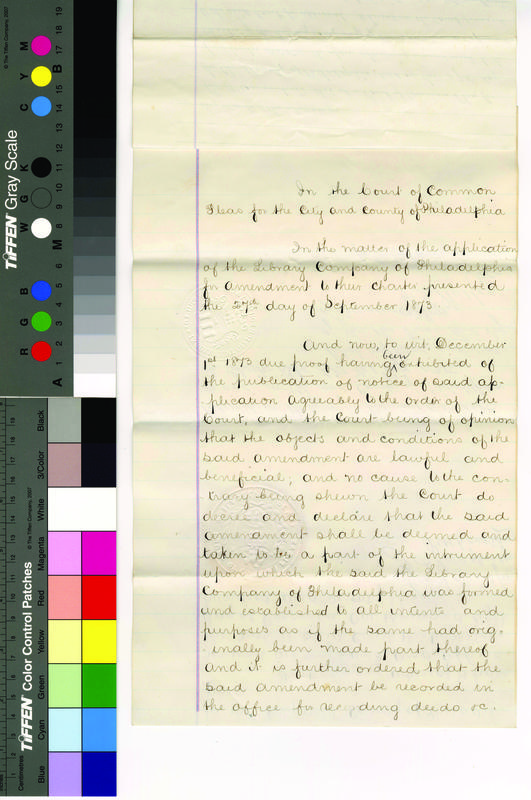 In the Court of Common
Pleas for the City and County of Philadelphia
In the matter of the application
of the Library Company of Philadelphia
for amendment to their charter presented
the 27th day of September 1873.
And now, to wit, December
1st 1873 due proof having been exhibited of
the publication of notice of said ap-
plication agreeably to the order of the
Court, and the Court being of opinion
that the objects and conditions of the
said amendment are lawful and
beneficial; and no cause to the con-
trary being shewn the Court do
decree and declare that the said
amendment shall be deemed and
taken to be a part of the intrument
upon which the said the Library
Company of Philadelphia was formed
and established to all intents and
purposes as if the same had orig-
inally been made part thereof
and it is further ordered that the
said amendment be recorded in
the office for recording deeds &c.
TIFFEN Gray Scale
© The Tiffen Company, 2007
R G B W G K C Y M
A 1 2 3 4 5 6 M 8 9 10 11 12 13 14 15 B 17 18 19
TIFFEN Color Control Patches
© The Tiffen Company, 2007
Centimetres
Blue Cyan Green Yellow Red Magenta White 3/Color Black